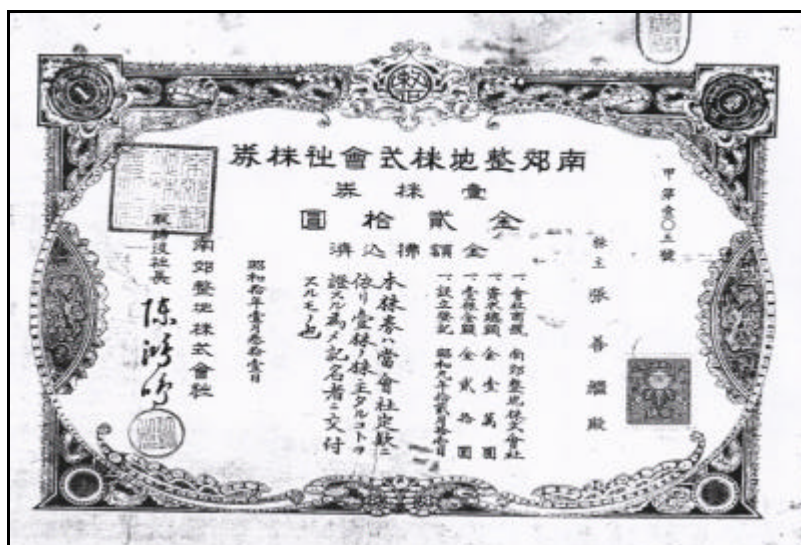 南郊整地株式會社株券
壹株券
金貳拾圓
金額拂込濟
甲第壹〇五號
株主 張善繼殿
一、會社商號 南郊整地株式會社
一、資本總額 金壹萬圓
一、壹株金額 金貳拾圓
一、設立登記 昭和九年拾貳月拾壹日
本株券ハ當會社定款ニ
依リ壹株ノ株主タルコトヲ
證スル為メ記名者ニ交付
スルモノ也
昭和拾年壹月叁拾壹日
南郊整地株式會社
取締役社長 陳鴻鳴